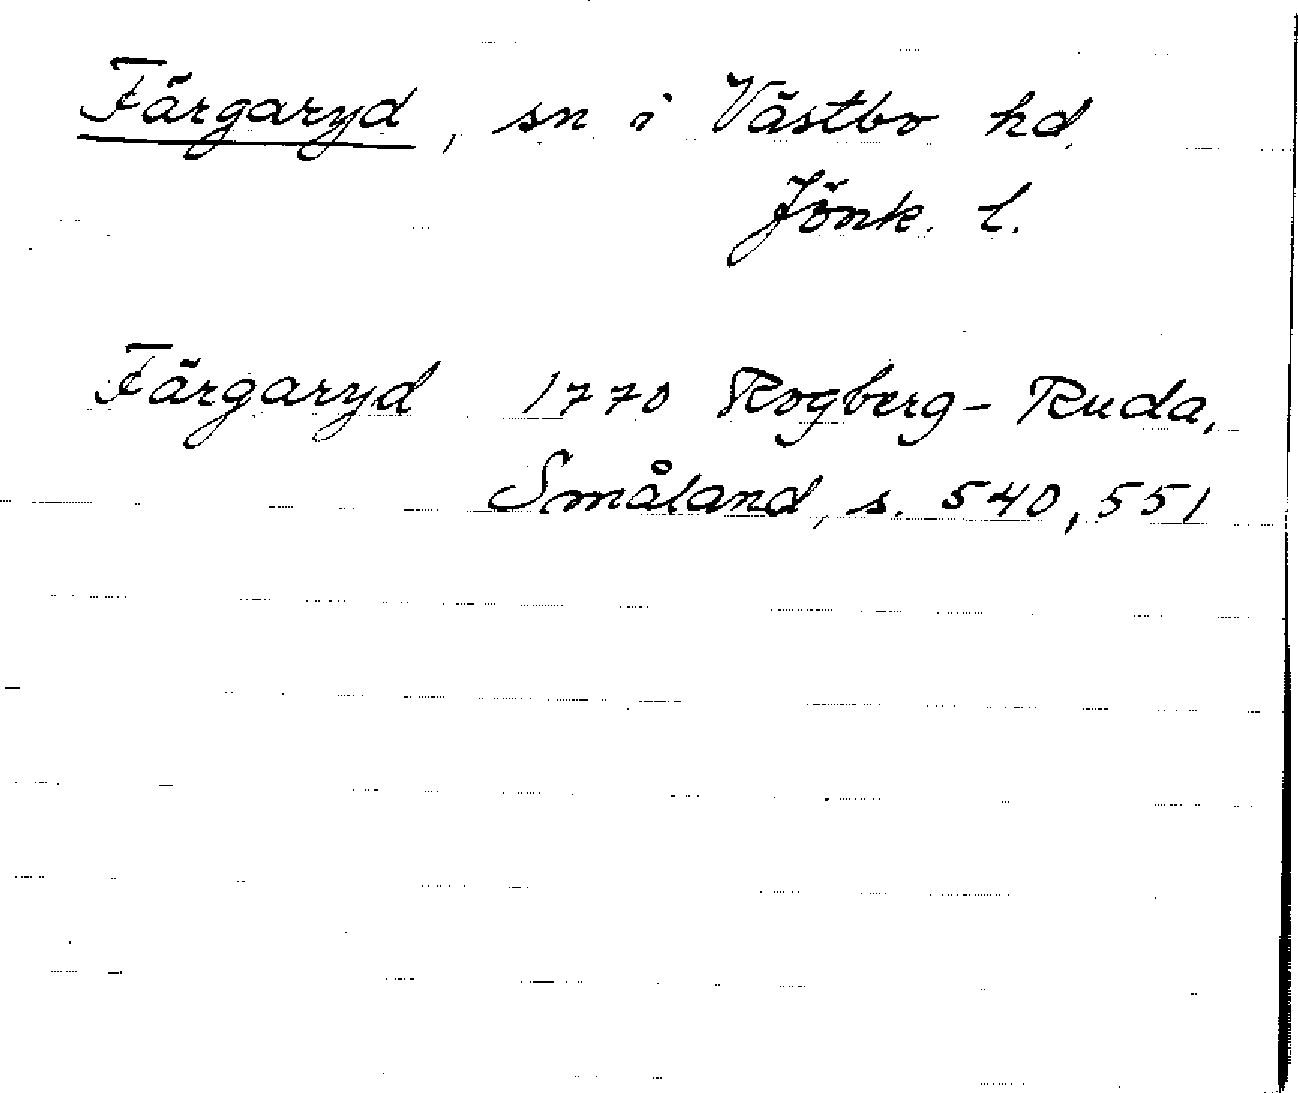 Färgaryd, sn i Västbo hd.
Jönk. l.
Färgaryd 1770 Rogberg-Ruda,
Småland, s. 540, 551